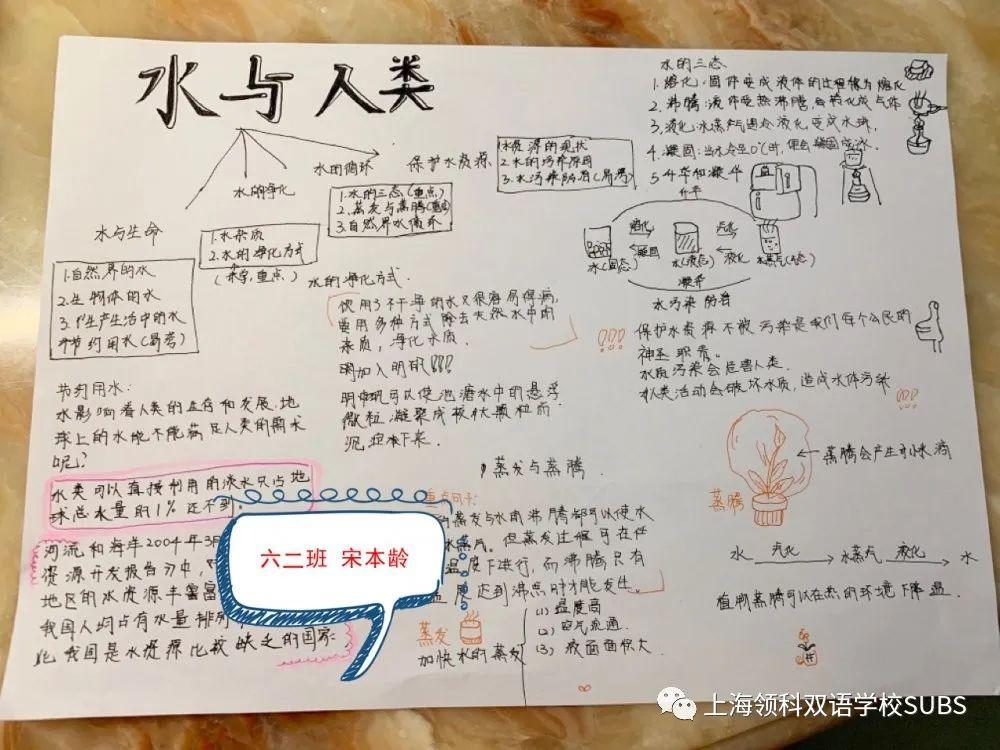 水与人类
水的净化
水的循环
保护水资源
水与生命
1.自然界的水
2.生物体的水
3.代生产生活中的水
节约用水(易考)
1.水杂质
2.水的净化方式
(来字,重点)
1.水的三态(重点)
2.蒸发与蒸腾(重点)
3.自然界水循环
水资源的现状
2.水的污染原因
3.水污染防治(易考)
水的三态
1.熔化:固体变成液体的过程称为熔化
2.沸腾:液体受热沸腾,会转化成气体
3.液化:水蒸气遇冷液化变成水珠.
4.凝固:当水冷至0℃时,便会凝固成冰.
5.升华和凝华
升华
熔化
凝固
汽化
液化
冰(固态)
水(液态)
水蒸气(气态)
凝华
节约用水:
水影响着人类的生存和发展,地
球上的水能不能满足人类的需求
呢?
水类可以直接利用的淡水只占地
球总水量的1%还不到.
河流和海洋2004年3月
资源开发报告习中,
地区的水资源丰富
我国人均占有水量排列
化我国是水资源比较缺乏的国家.
水的净化方式.
饮用了不干净的水又很容易得病,
要用多种方式除去天然水中的
杂质,净化水质.
明加入明矾!!!
明中矾可以使池塘水中的悬浮
微粒凝聚成核状颗粒而
沉淀下来.
蒸发与蒸腾
重点句子:
的蒸发与水的沸腾都可以使水
水蒸汽.但蒸发过程可在任
温度下进行,而沸腾只有
温度达到沸点时才能发生.
蒸发
加快水的蒸发
(1)温度高
(2)空气流通.
(3)液面面积大.
水污染防治
保护水资源不被污染是我们每个公民的
神圣职责.
水质污染会危害人类.
人类活动会破坏水质,造成水体污染
!!!
蒸腾会产生小水滴
蒸腾
水 汽化 水蒸气 液化 水
植物蒸腾可以在热的环境下降温.
六二班 宋本龄
上海领科双语学校SUBS